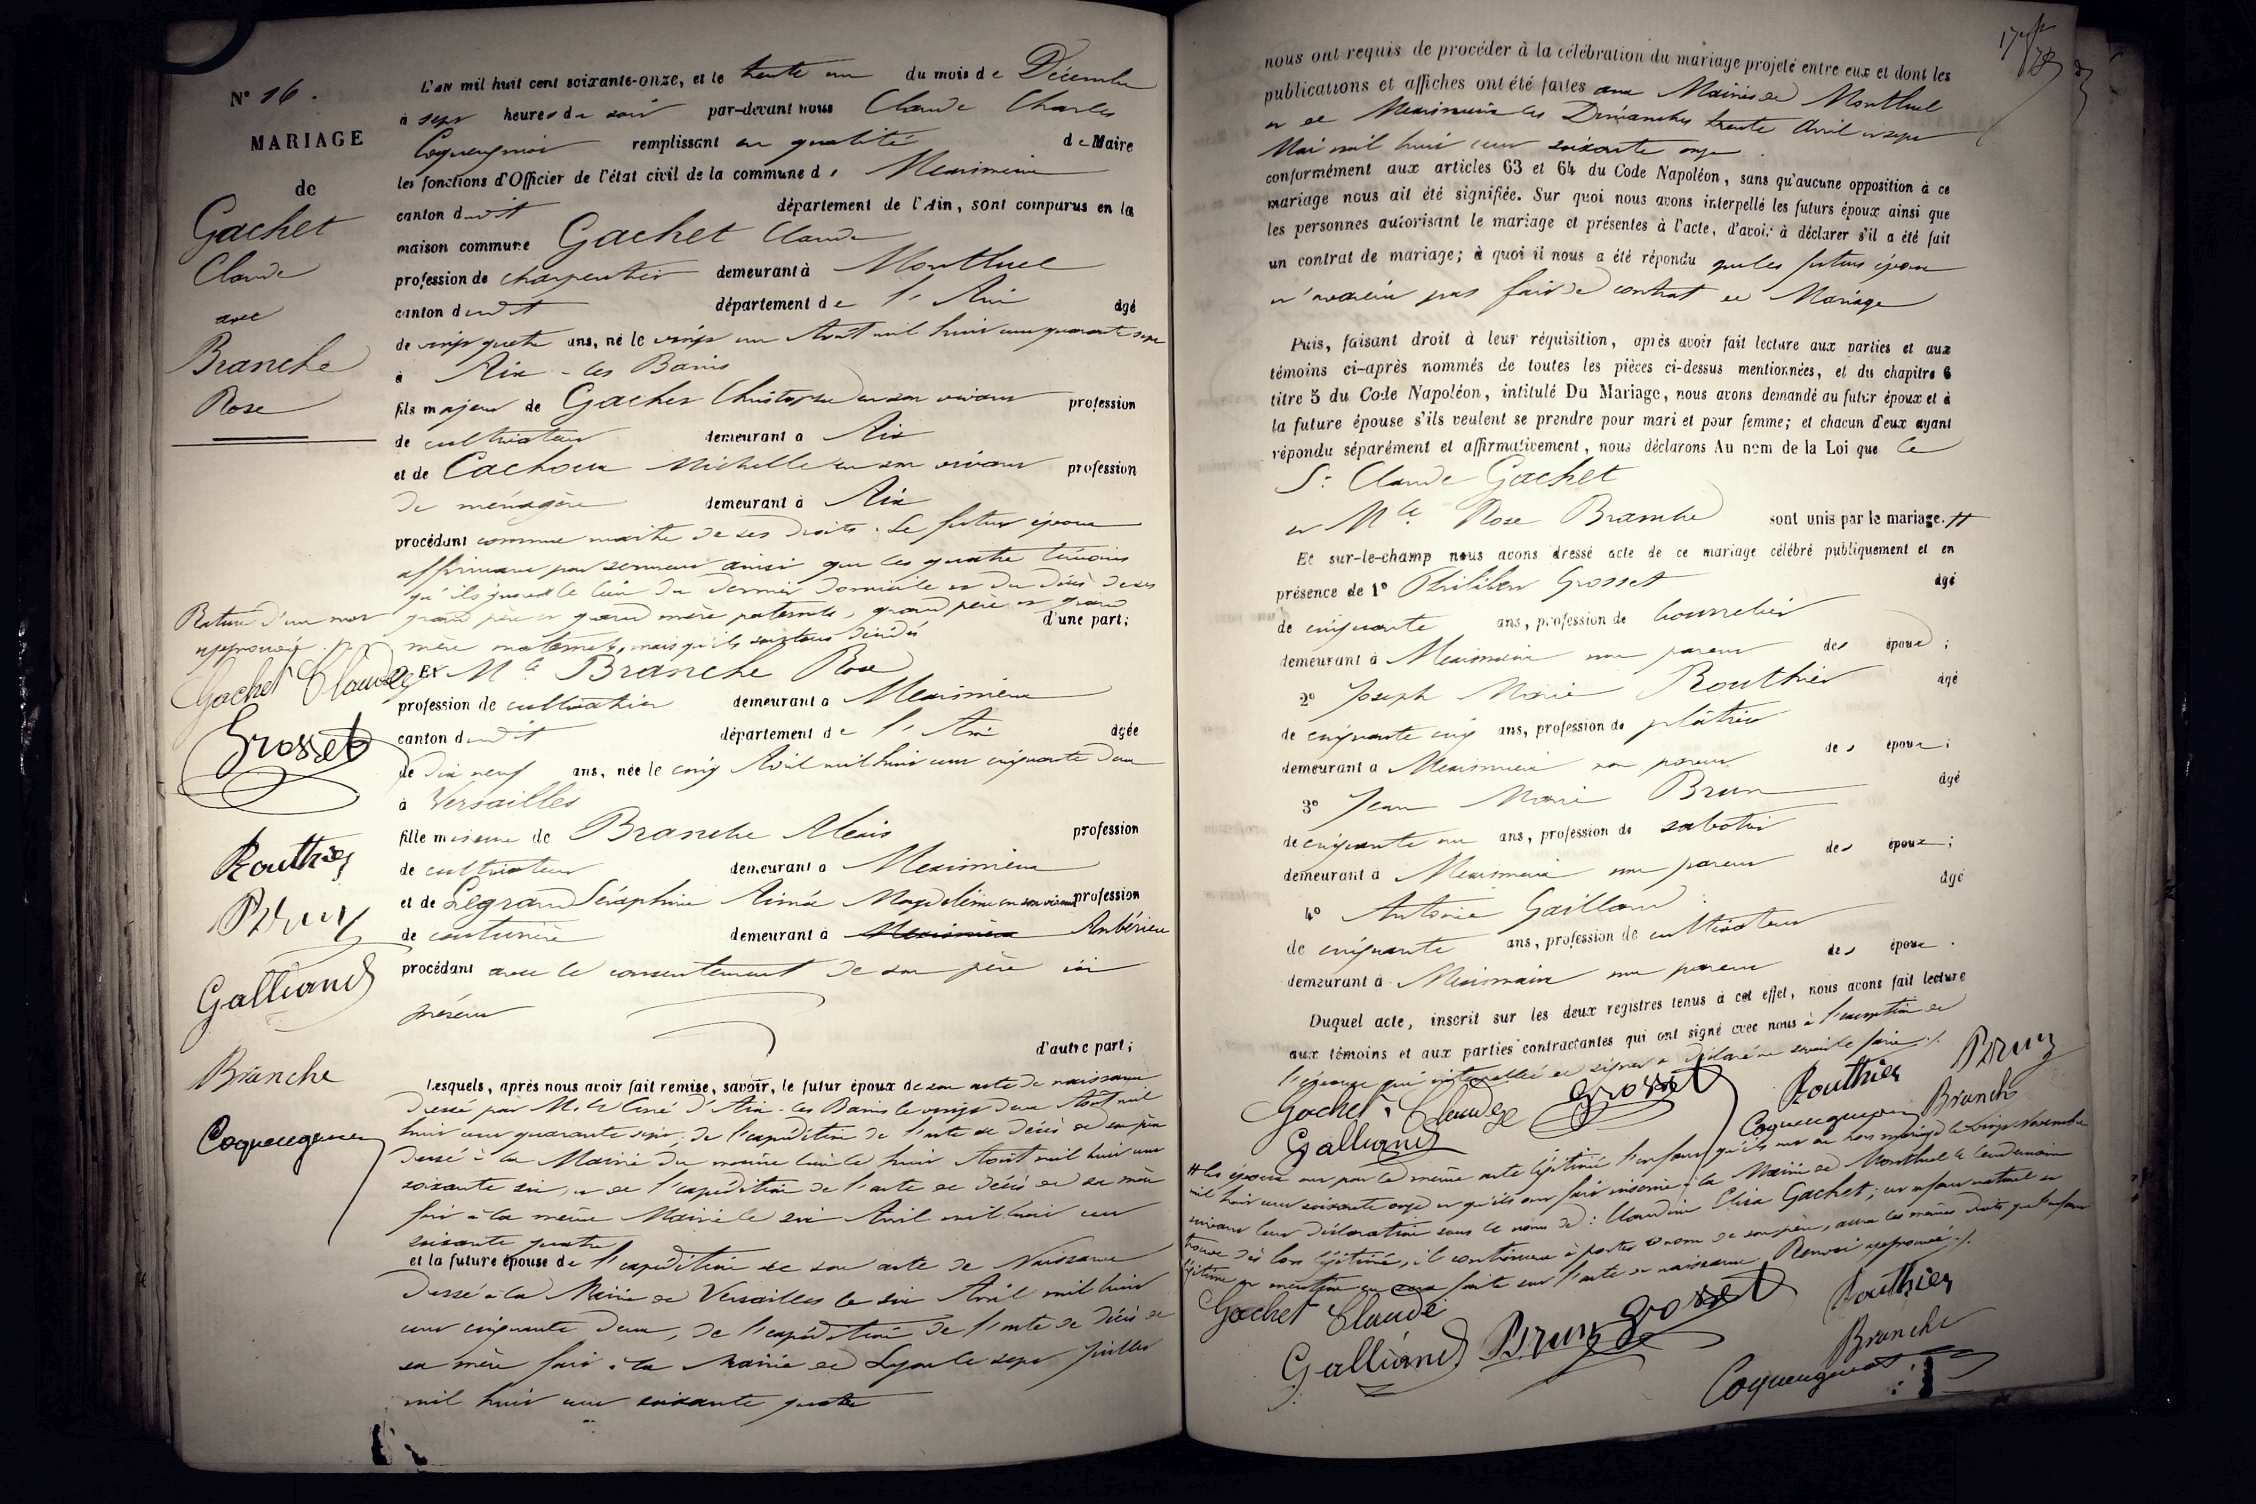 N° 16.
MARIAGE
de
Gachet
Claude
avec
Branche
Rose
L'an mil huit cent soixante-onze, et le trente un du mois de Décembre
à sept heures du soir par-devant nous Claude Charles
remplissant en qualité de Maire
les fonctions d'Officier de l'état civil de la commune de Meximieux
canton dudit département de l'Ain, sont comparus en la
maison commune Gachet Claude
profession de charpentier demeurant à Montluel
canton dudit département de l'Ain âgé
de vingt quatre ans, né le vingt un Août mil huit cent quarante sept
à Aix-les Bains
fils majeur de Gachet Christophe en son vivant profession
de cultivateur demeurant à Aix
et de Cachoux Michelle en son vivant profession
de ménagère demeurant à Aix
procédant comme maître de ses droits. Le futur époux
affirmant par serment ainsi que les quatre témoins
qu'ils ignorent le lieu du dernier domicile et du décès de ses
grand père et grand mère paternels, grand père et grand
mère maternels, mais qu'ils sont tous décédés d'une part;
Rature d'un mot
approuvée
Gachet Claude
Grosset
Routhier
Brun
Galliand
Branche
Et Mlle Branche Rose
profession de cultivatrice demeurant à Meximieux
canton dudit département de l'Ain âgée
de dix neuf ans, née le cinq Avril mil huit cent cinquante deux
à Versailles
fille mineure de Branche Alexis profession
de cultivateur demeurant à Meximieux
et de Legrand Séraphine Aimée Magdeleine en son vivant profession
de couturière demeurant à Meximieux Ambérieu
procédant avec le consentement de son père ici
présent
d'autre part;
Lesquels, après nous avoir fait remise, savoir, le futur époux de son acte de naissance
dressé par M. le Curé d'Aix-les Bains le vingt deux Août mil
huit cent quarante sept, de l'expédition de l'acte de décès de son père
dressé à la Mairie du même lieu le huit Août mil huit cent
soixante six, et de l'expédition de l'acte de décès de sa mère
fait à la même Mairie le six Avril mil huit cent
soixante quatre
et la future épouse de l'expédition de son acte de Naissance
dressé à la Mairie de Versailles le six Avril mil huit
cent cinquante deux, de l'expédition de l'acte de décès de
sa mère fait à la Mairie de Lyon le sept Juillet
mil huit cent soixante quatre
nous ont requis de procéder à la célébration du mariage projeté entre eux et dont les
publications et affiches ont été faites aux Mairies de Montluel
et de Meximieux les Dimanches trente Avril et sept
Mai mil huit cent soixante onze
conformément aux articles 63 et 64 du Code Napoléon, sans qu'aucune opposition à ce
mariage nous ait été signifiée. Sur quoi nous avons interpellé les futurs époux ainsi que
les personnes autorisant le mariage et présentes à l'acte, d'avoir à déclarer s'il a été fait
un contrat de mariage; à quoi il nous a été répondu que les futurs époux
n'avaient pas fait de contrat de Mariage
Puis, faisant droit à leur réquisition, après avoir fait lecture aux parties et aux
témoins ci-après nommés de toutes les pièces ci-dessus mentionnées, et du chapitre 6
titre 5 du Code Napoléon, intitulé Du Mariage, nous avons demandé au futur époux et à
la future épouse s'ils veulent se prendre pour mari et pour femme; et chacun d'eux ayant
répondu séparément et affirmativement, nous déclarons Au nom de la Loi que le
Sr Claude Gachet
et Mlle Rose Branche sont unis par le mariage. #
Et sur-le-champ nous avons dressé acte de ce mariage célébré publiquement et en
présence de 1° Philibert Grosset âgé
de cinquante ans, profession de bourrelier
demeurant à Meximieux non parent des époux;
2° Joseph Marie Routhier âgé
de cinquante cinq ans, profession de plâtrier
demeurant à Meximieux non parent des époux;
3° Jean Marie Brun âgé
de cinquante un ans, profession de sabotier
demeurant à Meximieux non parent des époux;
4° Antoine Gailland âgé
de cinquante ans, profession de cultivateur
demeurant à Meximieux non parent des époux.
Duquel acte, inscrit sur les deux registres tenus à cet effet, nous avons fait lecture
aux témoins et aux parties contractantes qui ont signé avec nous à l'exception de
l'épouse qui interpellée de signer a déclaré ne savoir le faire ./.
Gachet Claude Grosset Routhier Brun
Galliand Branche
# Les époux ont par le même acte légitimé l'enfant qu'ils ont eu hors mariage le vingt Novembre
mil huit cent soixante onze et qu'ils ont fait inscrire à la Mairie de Montluel le lendemain
suivant leur déclaration sous le nom de: Claudine Elisa Gachet; cet enfant naturel se
trouve dès lors légitimé, il continuera à porter le nom de son père, aura les mêmes droits que l'enfant
légitime et mention en sera faite sur l'acte de naissance. Renvoi approuvé ./.
Gachet Claude Grosset Routhier
Galliand Brun Branche